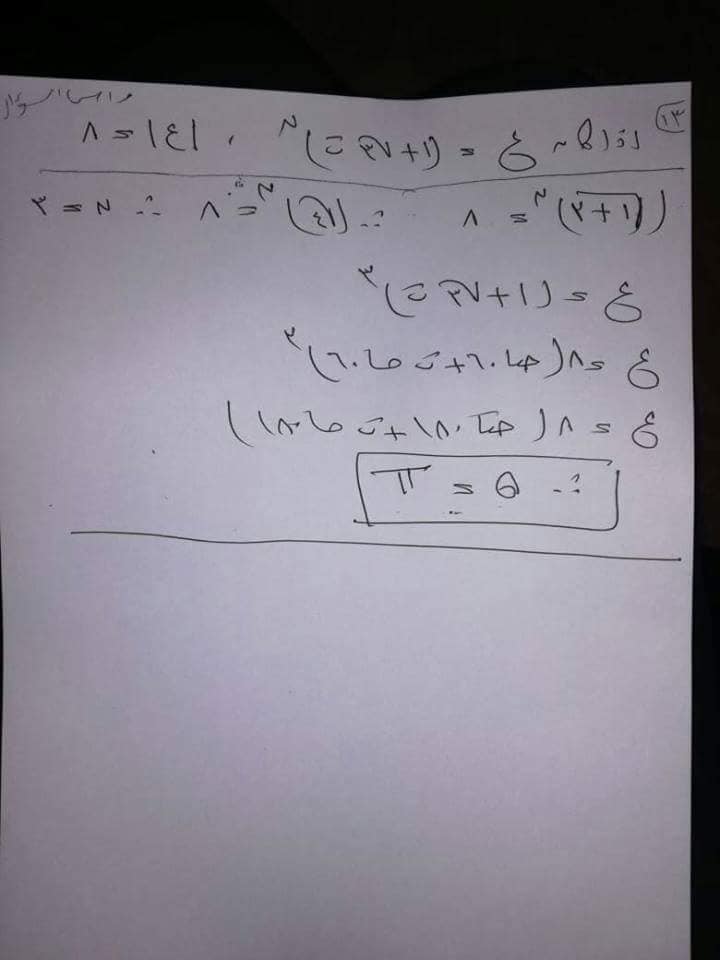 واجب السؤال
١٣ إذا كان ع = (١ + √٣ ت)ⁿ ، |ع| = ٨
(√(١+٣))ⁿ = ٨ ∴ (√٤)ⁿ = ٨ ∴ ن = ٣
ع = (١ + √٣ ت)³
ع = ٨(جتا ٦٠ + ت جا ٦٠)³
ع = ٨(جتا ١٨٠ + ت جا ١٨٠)
∴ θ = π